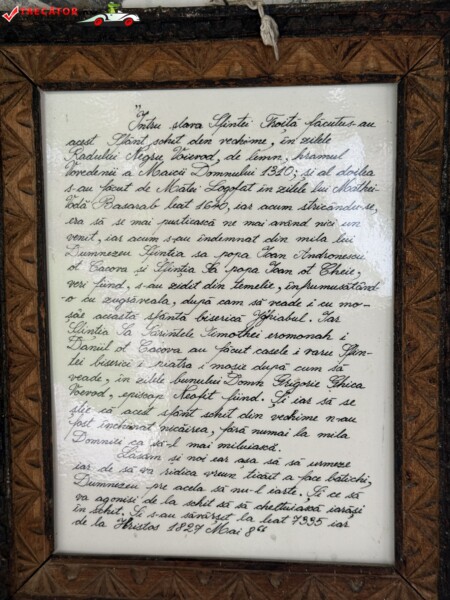 TRECĂTOR
"Întru slava Sfintei Troiță făcutus-au
acest Sfânt schit den vechime, în zilele
Radului Negru Voievod, de lemn, hramul
Vovedenii a Maicii Domnului 1310; și al doilea
s-au făcut de Matei Logofăt în zilele lui Mathei-
Vodă Basarab leat 1640, iar acum stricându-se,
era să se mai pustiească ne mai având nici un
venit, iar acum s-au îndemnat din mila lui
Dumnezeu Sfinția sa popa Ioan Andronescu
ot Cacova și Sfinția Sa popa Ioan ot Cheie,
veri fiind, s-au zidit din temelie, înfrumusățând
-o cu zugrăveala, după cam să veade i cu mo-
șâe această sfântă biserică. Iar
Sfinția Sa Părintele Timothei eromonah i
Daniil ot Cacova au făcut casele i Sfin-
tei biserici i piatra i mosie după cum să
veade, în zilele bunului Domn Grigorie Ghica
Voevod, episcop Neofit fiind. Și iar să se
știe că acest sfânt schit din vechime n-au
fost închinat nicăirea, fără numai la mila
Domniei ca să-l mai miluiască.
Lăsăm și noi iar așa să să urmeze
iar de să va ridica vreun a face
Dumnezeu pre acela să nu-l iarte. Și ce să
va agonisi de la schit să să cheltuiască iarăși
în schit. Și s-au săvârșit la leat 7335 iar
de la Hristos 1827 Mai 8"